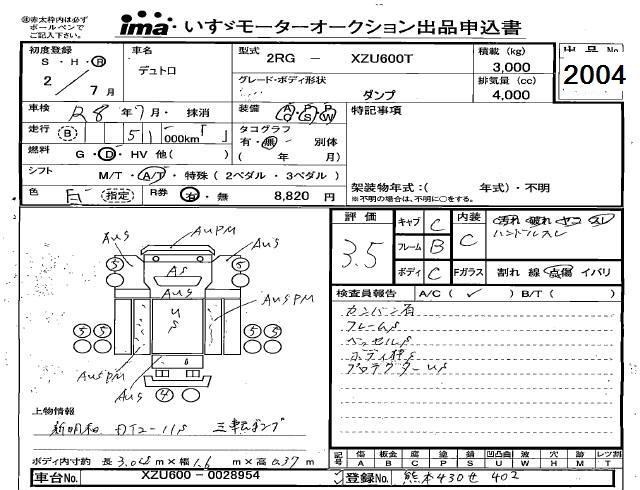 ※赤太枠内は必ず
ボールペンで
ご記入下さい。
ima いすゞモーターオークション出品申込書
初度登録
S・H・R
2 / 7月
車名
デュトロ
型式 2RG - XZU600T
グレード・ボディ形状
ダンプ
積載 (kg)
3,000
排気量 (cc)
4,000
出品No
2004
車検 R8年7月・抹消
装備 AC PS PW
特記事項
走行 B 51 000km
タコグラフ
有・無・別体
( 年 月)
燃料 G・D・HV 他( )
シフト M/T・A/T・特殊 (2ペダル・3ペダル)
色 白 指定 R券 有・無 8,820円
架装物年式:( 年式)・不明
※不明の場合は、不明に○をする。
評価 3.5
キャブ C
フレーム B
ボディ C
内装 C
汚れ 破れ ヤコ スレ
ハンドルスレ
Fガラス 割れ 線 点傷 イバリ
AUPM
AUS
AUS
5
5
AS
AUS
US
AUSPM
5
5
5
5
AUSPM
AUS
4
検査員報告 A/C ( ✓ ) B/T ( )
カンバン有
フレームS
ベッセルS
ボディ枠S
プロテクターUS
上物情報
新明和 三転ダンプ
ボディ内寸約 長 m×幅 1.6 m×高 0.37 m
記号 傷 A 板金 B 腐 C 塗 P 錆 S 凹凸曲 U 波 W 穴 H 跡 M レツ割 T
車台No. XZU600 - 0028954
登録No. 熊本430せ 402